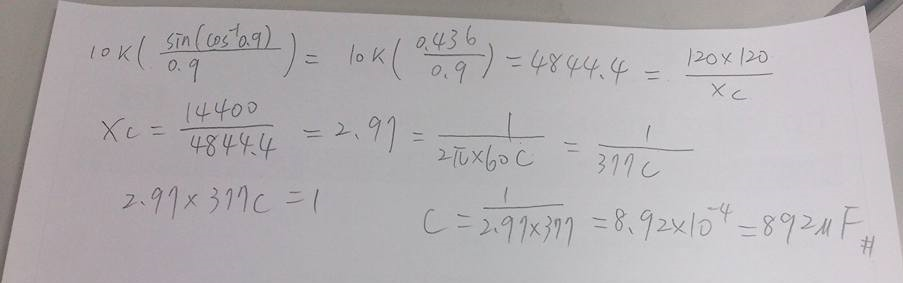 10K( sin(cos⁻¹0.9) / 0.9 ) = 10K( 0.436 / 0.9 ) = 4844.4 = 120×120 / Xc
Xc = 14400 / 4844.4 = 2.97 = 1 / 2π×60C = 1 / 377C
2.97×377C = 1
C = 1 / 2.97×377 = 8.92×10⁻⁴ = 892μF #